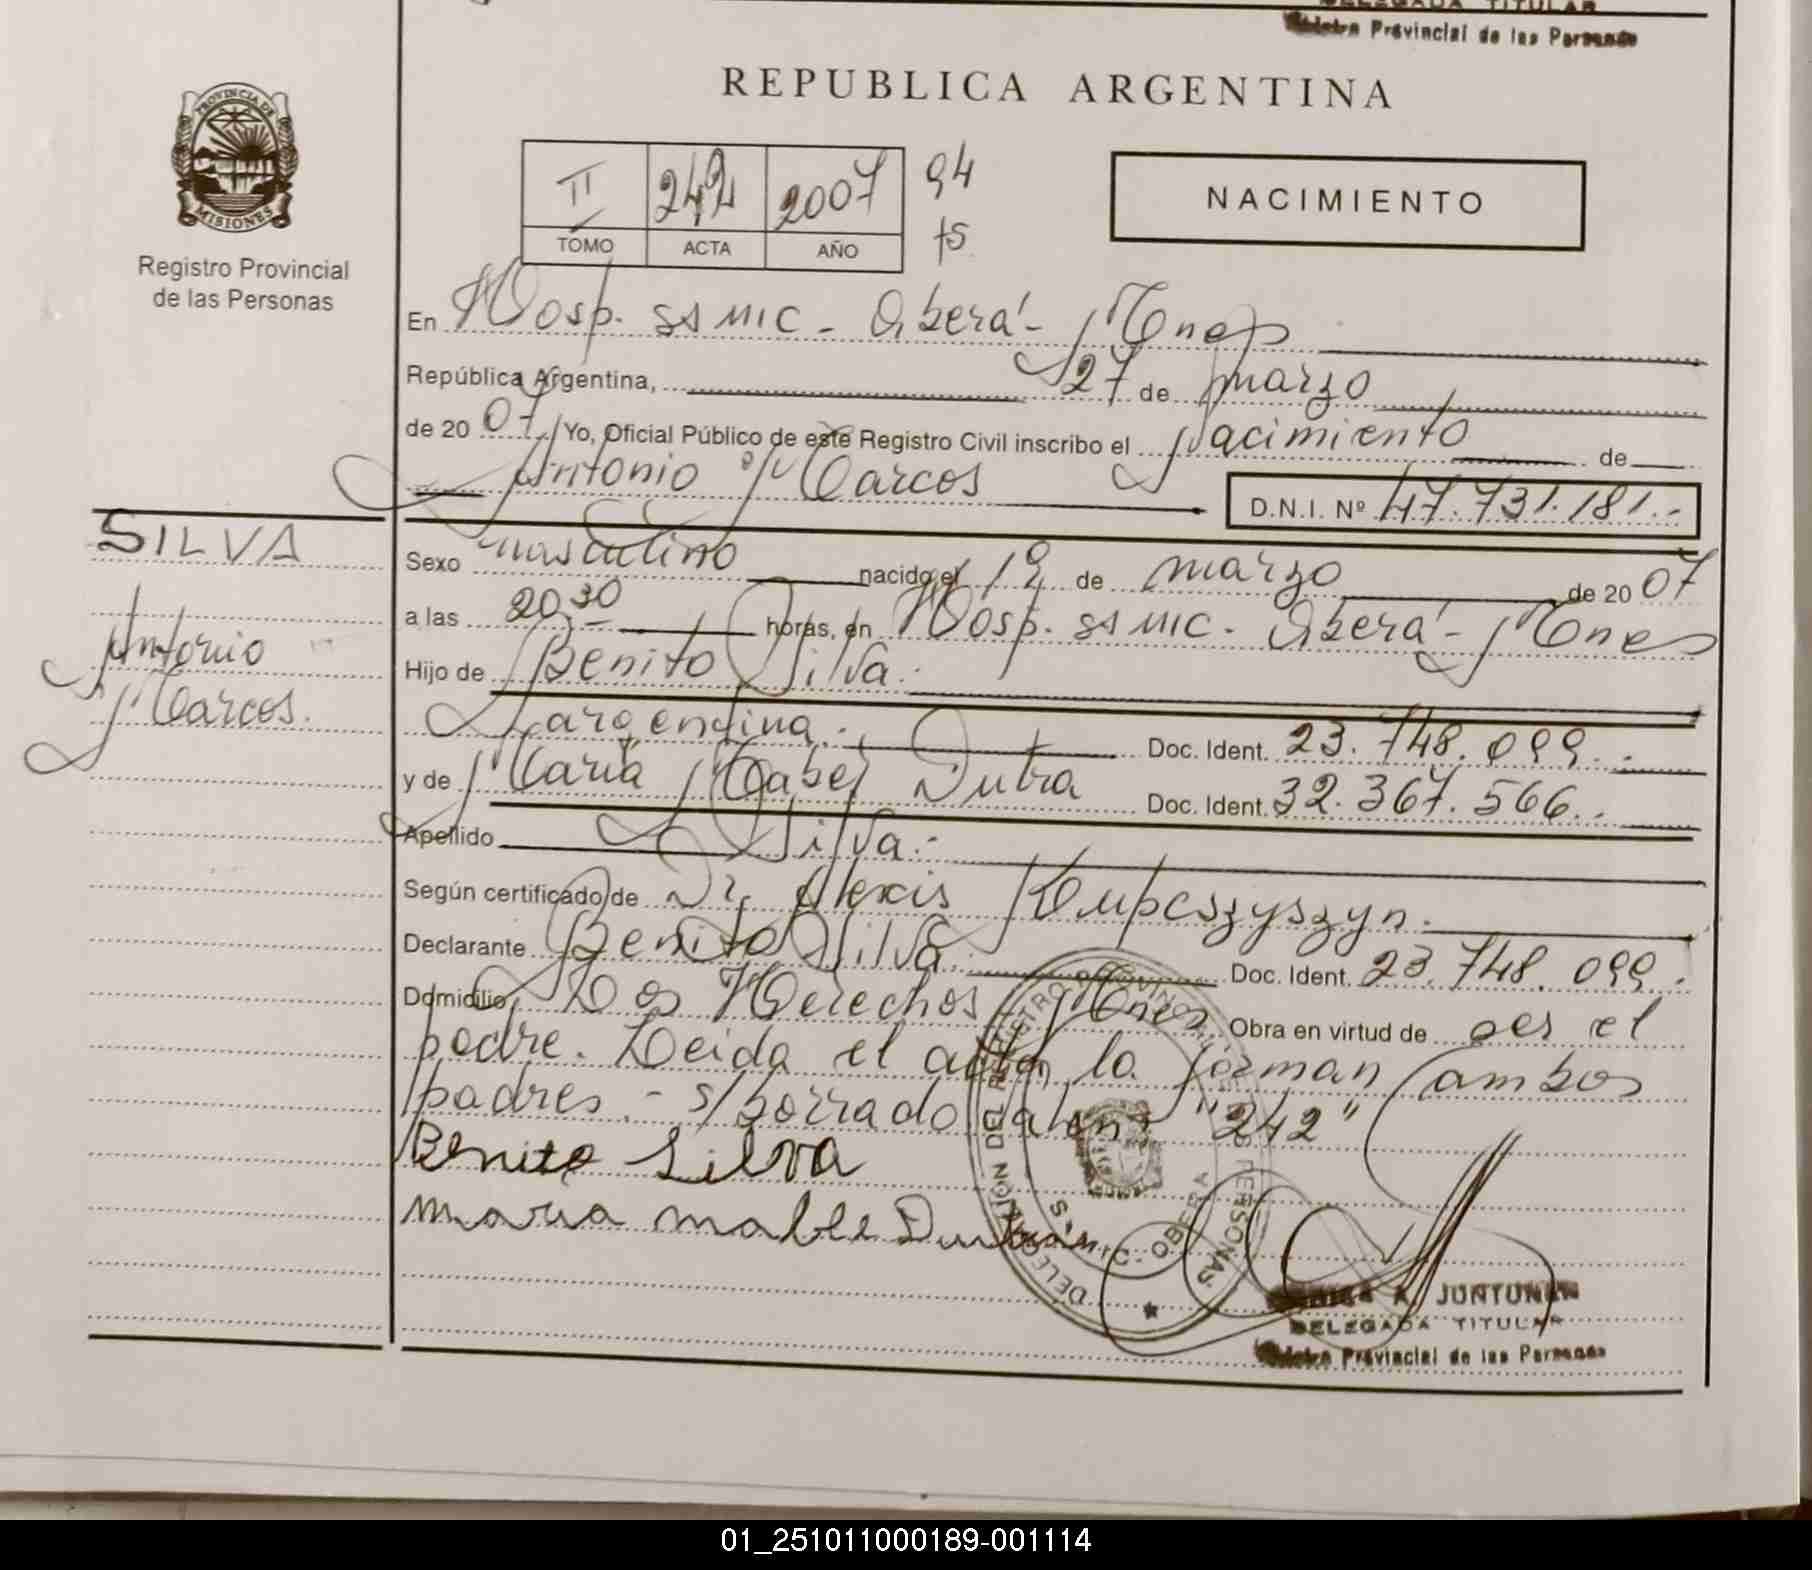 DELEGADA TITULAR
Provincial de las Personas
REPUBLICA ARGENTINA
PROVINCIA DE MISIONES
Registro Provincial
de las Personas
II 242 2007 94
TOMO ACTA AÑO ts
NACIMIENTO
En Hosp. SAMIC - Oberá - Mnes
República Argentina, 27 de marzo
de 2007 Yo, Oficial Público de este Registro Civil inscribo el Nacimiento de
Antonio Marcos D.N.I. Nº 47.731.181.-
SILVA
Antonio
Marcos.
Sexo masculino nacido el 19 de marzo de 2007
a las 20,30 horas, en Hosp. SAMIC. Oberá - Mnes
Hijo de Benito Silva.
argentina.- Doc. Ident. 23.748.099.-
y de María Mabel Dutra Doc. Ident. 32.367.566.-
Apellido Silva.-
Según certificado de Dr. Alexis Kupcszyszyn.
Declarante Benito Silva. Doc. Ident. 23.748.099.
Domicilio Dos Herechos - Mnes Obra en virtud de ser el
padre. Leida el acta, la firman ambos
padres.- s/borrado "242"
Benito Silva
maria mable Dutra
DELEGACION DEL REGISTRO PROVINCIAL DE LAS PERSONAS
S.A.M.I.C. OBERA
A. JUNTUNEN
DELEGADA TITULAR
Provincial de las Personas
01_251011000189-001114